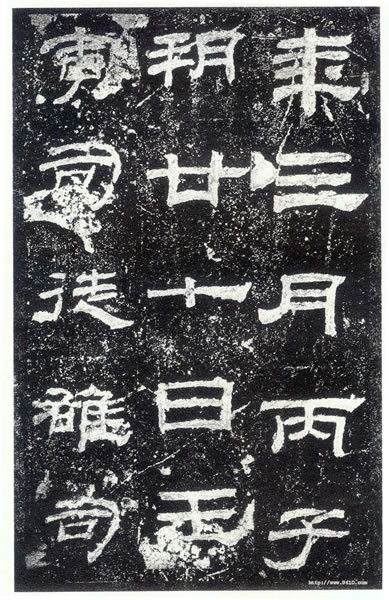 年三月丙子
朔廿七日壬
寅司徒雄司
http://www.9610.com